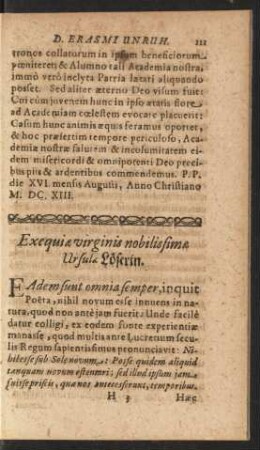 D. ERASMI UNRUH. 111
tronos collatorum in ipsum beneficiorum
pœniteret & Alumno tali Academia nostra,
immò verò inclyta Patria lætari aliquando
posset. Sed aliter æterno Deo visum fuit:
Cui cum juvenem hunc in ipso ætatis flore
ad Academiam cœlestem evocare placuerit:
Casum hunc animis æquis feramus oportet,
& hoc præsertim tempore periculoso, Aca-
demiæ nostræ salutem & incolumitatem ei-
dem misericordi & omnipotenti Deo preci-
bus piis & ardentibus commendemus. P. P.
die XVI. mensis Augusti, Anno Christiano
M. DC. XIII.
Exequiæ virginis nobilissimæ
Ursulæ Löserin.
EAdem sunt omnia semper, inquit
Poëta, nihil novum esse innuens in na-
tura, quod non antè jam fuerit. Unde facilè
datur colligi, ex eodem fonte experientiæ
manasse, quod multis ante Lucretium secu-
lis Regum sapientissimus pronunciavit: Ni-
hil esse sub Sole novum,
tanquam novum ostentari; sed illud ipsum jam
fuisse priscis, quæ nos antecesserunt, temporibus.
H 3 Hæc